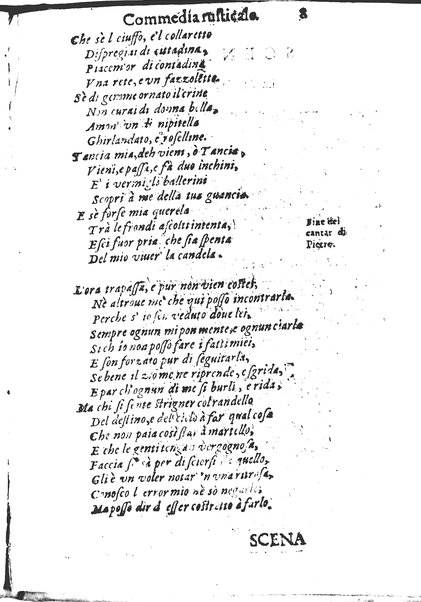 Commedia rusticale. 8
Che sè l ciuffo, e'l collaretto
Dispregiai di cittadina,
Piacemor di contadina
Vna rete, e vn fazzoletto
Sè di gemme ornato il crine
Non curai di donna bella,
Amai vn di nipitella
Ghirlandato, e roselline.
Tancia mia, deh vieni, ò Tancia,
Vieni, e passa, e fà duo inchini,
E i vermigli ballerini
Scopri à me della tua guancia.
E sè forse mia querela
Trà le frondi ascolti intenta,
Esci fuor pria che sia spenta
Del mio viuer la candela.
Fine del
cantar di
Pietro.
L'ora trapassa, e pur non vien costei,
Nè altroue mè che qui posso incontrarla.
Perche s'io son veduto doue lei,
Sempre ognun mi pon mente, e ognun ciarla
Sich'io non posso fare i fatti miei,
E son forzato pur di seguitarla,
Se bene il zio me ne riprende, e sgrida,
E par ch'ognun di me si burli, e rida;
Ma chi si sente strigner col randello
Del destino, e del cielo à far qual cosa
Che non paia così stai à martello,
E che le genti tengan vergognosa,
Faccia per di sciorsi da quello,
Gli è vn voler notar'n vna ritrosa,
Conosco l error mio nè sò negarlo,
Ma posso dir d esser costretto à farlo.
SCENA